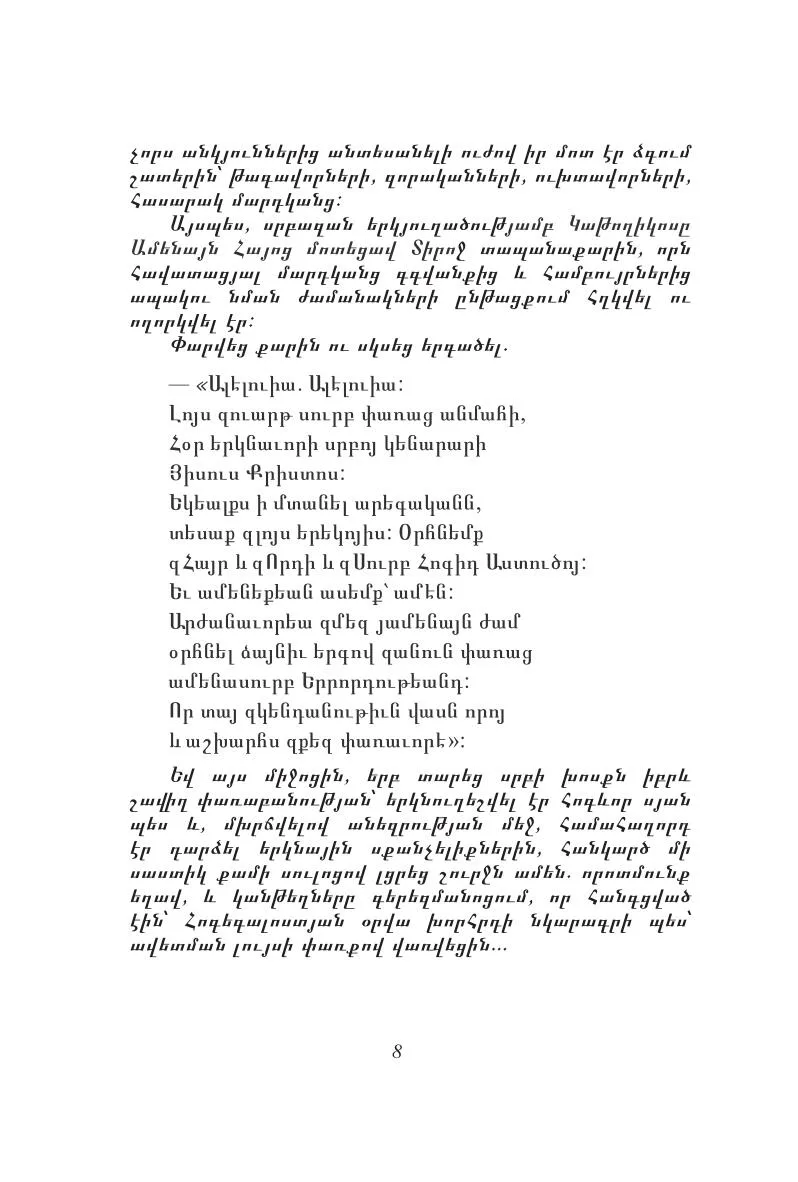 չորս անկյուններից անտեսանելի ուժով իր մոտ էր ձգում
շատերին՝ թագավորների, զորականների, ուխտավորների,
հասարակ մարդկանց:
Այսպես, սրբազան երկյուղածությամբ Կաթողիկոսը
Ամենայն Հայոց մոտեցավ Տիրոջ տապանաքարին, որն
հավատացյալ մարդկանց գգվանքից և համբույրներից
ապակու նման ժամանակների ընթացքում հղկվել ու
ողորկվել էր:
Փարվեց քարին ու սկսեց երգածել.
— «Ալէլուիա. Ալէլուիա:
Լոյս զուարթ սուրբ փառաց անմահի,
Հօր երկնաւորի սրբոյ կենարարի
Յիսուս Քրիստոս:
Եկեալքս ի մտանել արեգականն,
տեսաք զլոյս երեկոյիս: Օրհնեմք
զՀայր և զՈրդի և զՍուրբ Հոգիդ Աստուծոյ:
Եւ ամենեքեան ասեմք՝ ամէն:
Արժանաւորեա զմեզ յամենայն ժամ
օրհնել ձայնիւ երգով զանուն փառաց
ամենասուրբ Երրորդութեանդ:
Որ տայ զկենդանութիւն վասն որոյ
և աշխարհս զքեզ փառաւորէ»:
Եվ այս միջոցին, երբ տարեց սրբի խոսքն իբրև
շավիղ փառաբանության՝ երկնուղեշվել էր հոգևոր սյան
պես և, մխրճվելով անեզրության մեջ, համահաղորդ
էր դարձել երկնային սքանչելիքներին, հանկարծ մի
սաստիկ քամի սուլոցով լցրեց շուրջն ամեն. որոտմունք
եղավ, և կանթեղները գերեզմանոցում, որ հանգցված
էին՝ Հոգեգալոստյան օրվա խորհրդի նկարագրի պես՝
ավետման լույսի փառքով վառվեցին...
8